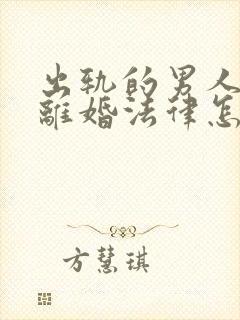 出轨的男人
離婚法律怎
方慧琪